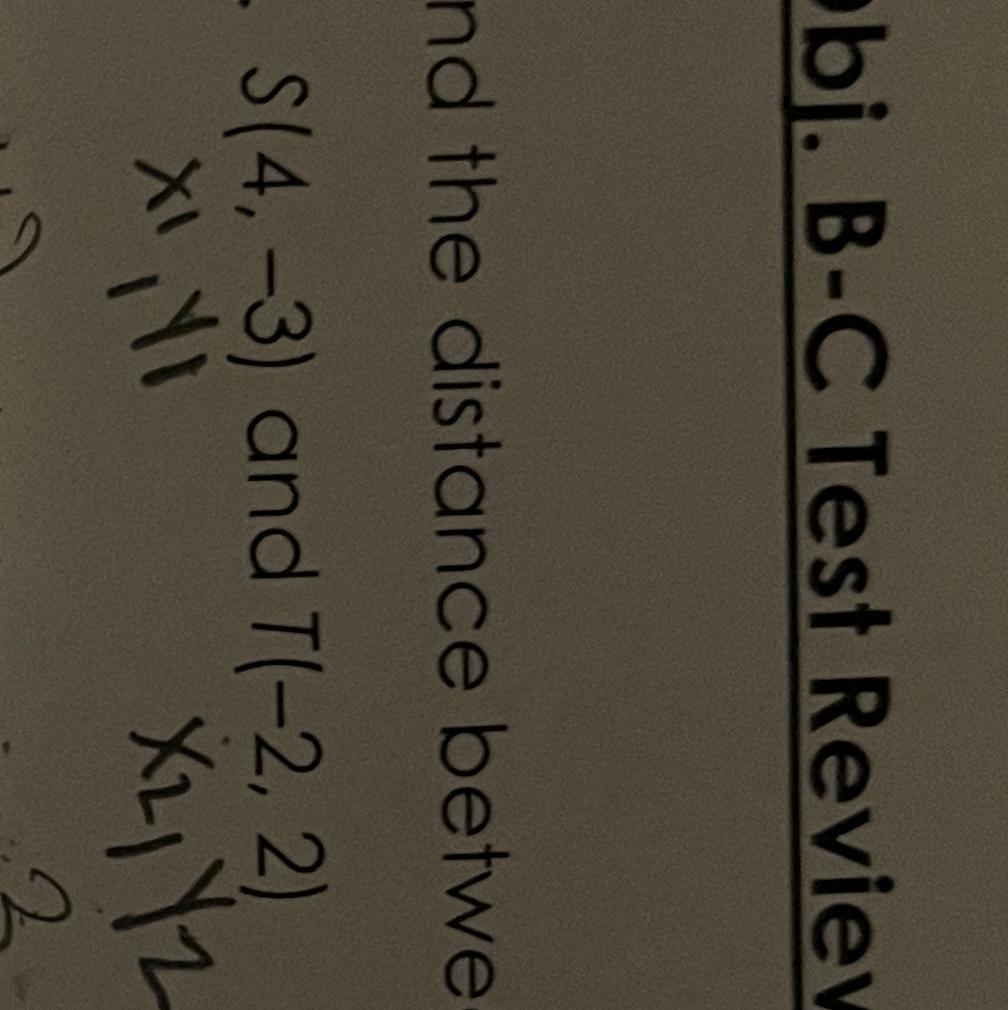 obj. B-C Test Review
nd the distance betwe
. S(4, -3) and T(-2, 2)
x1 , y1 x2 , y2
2